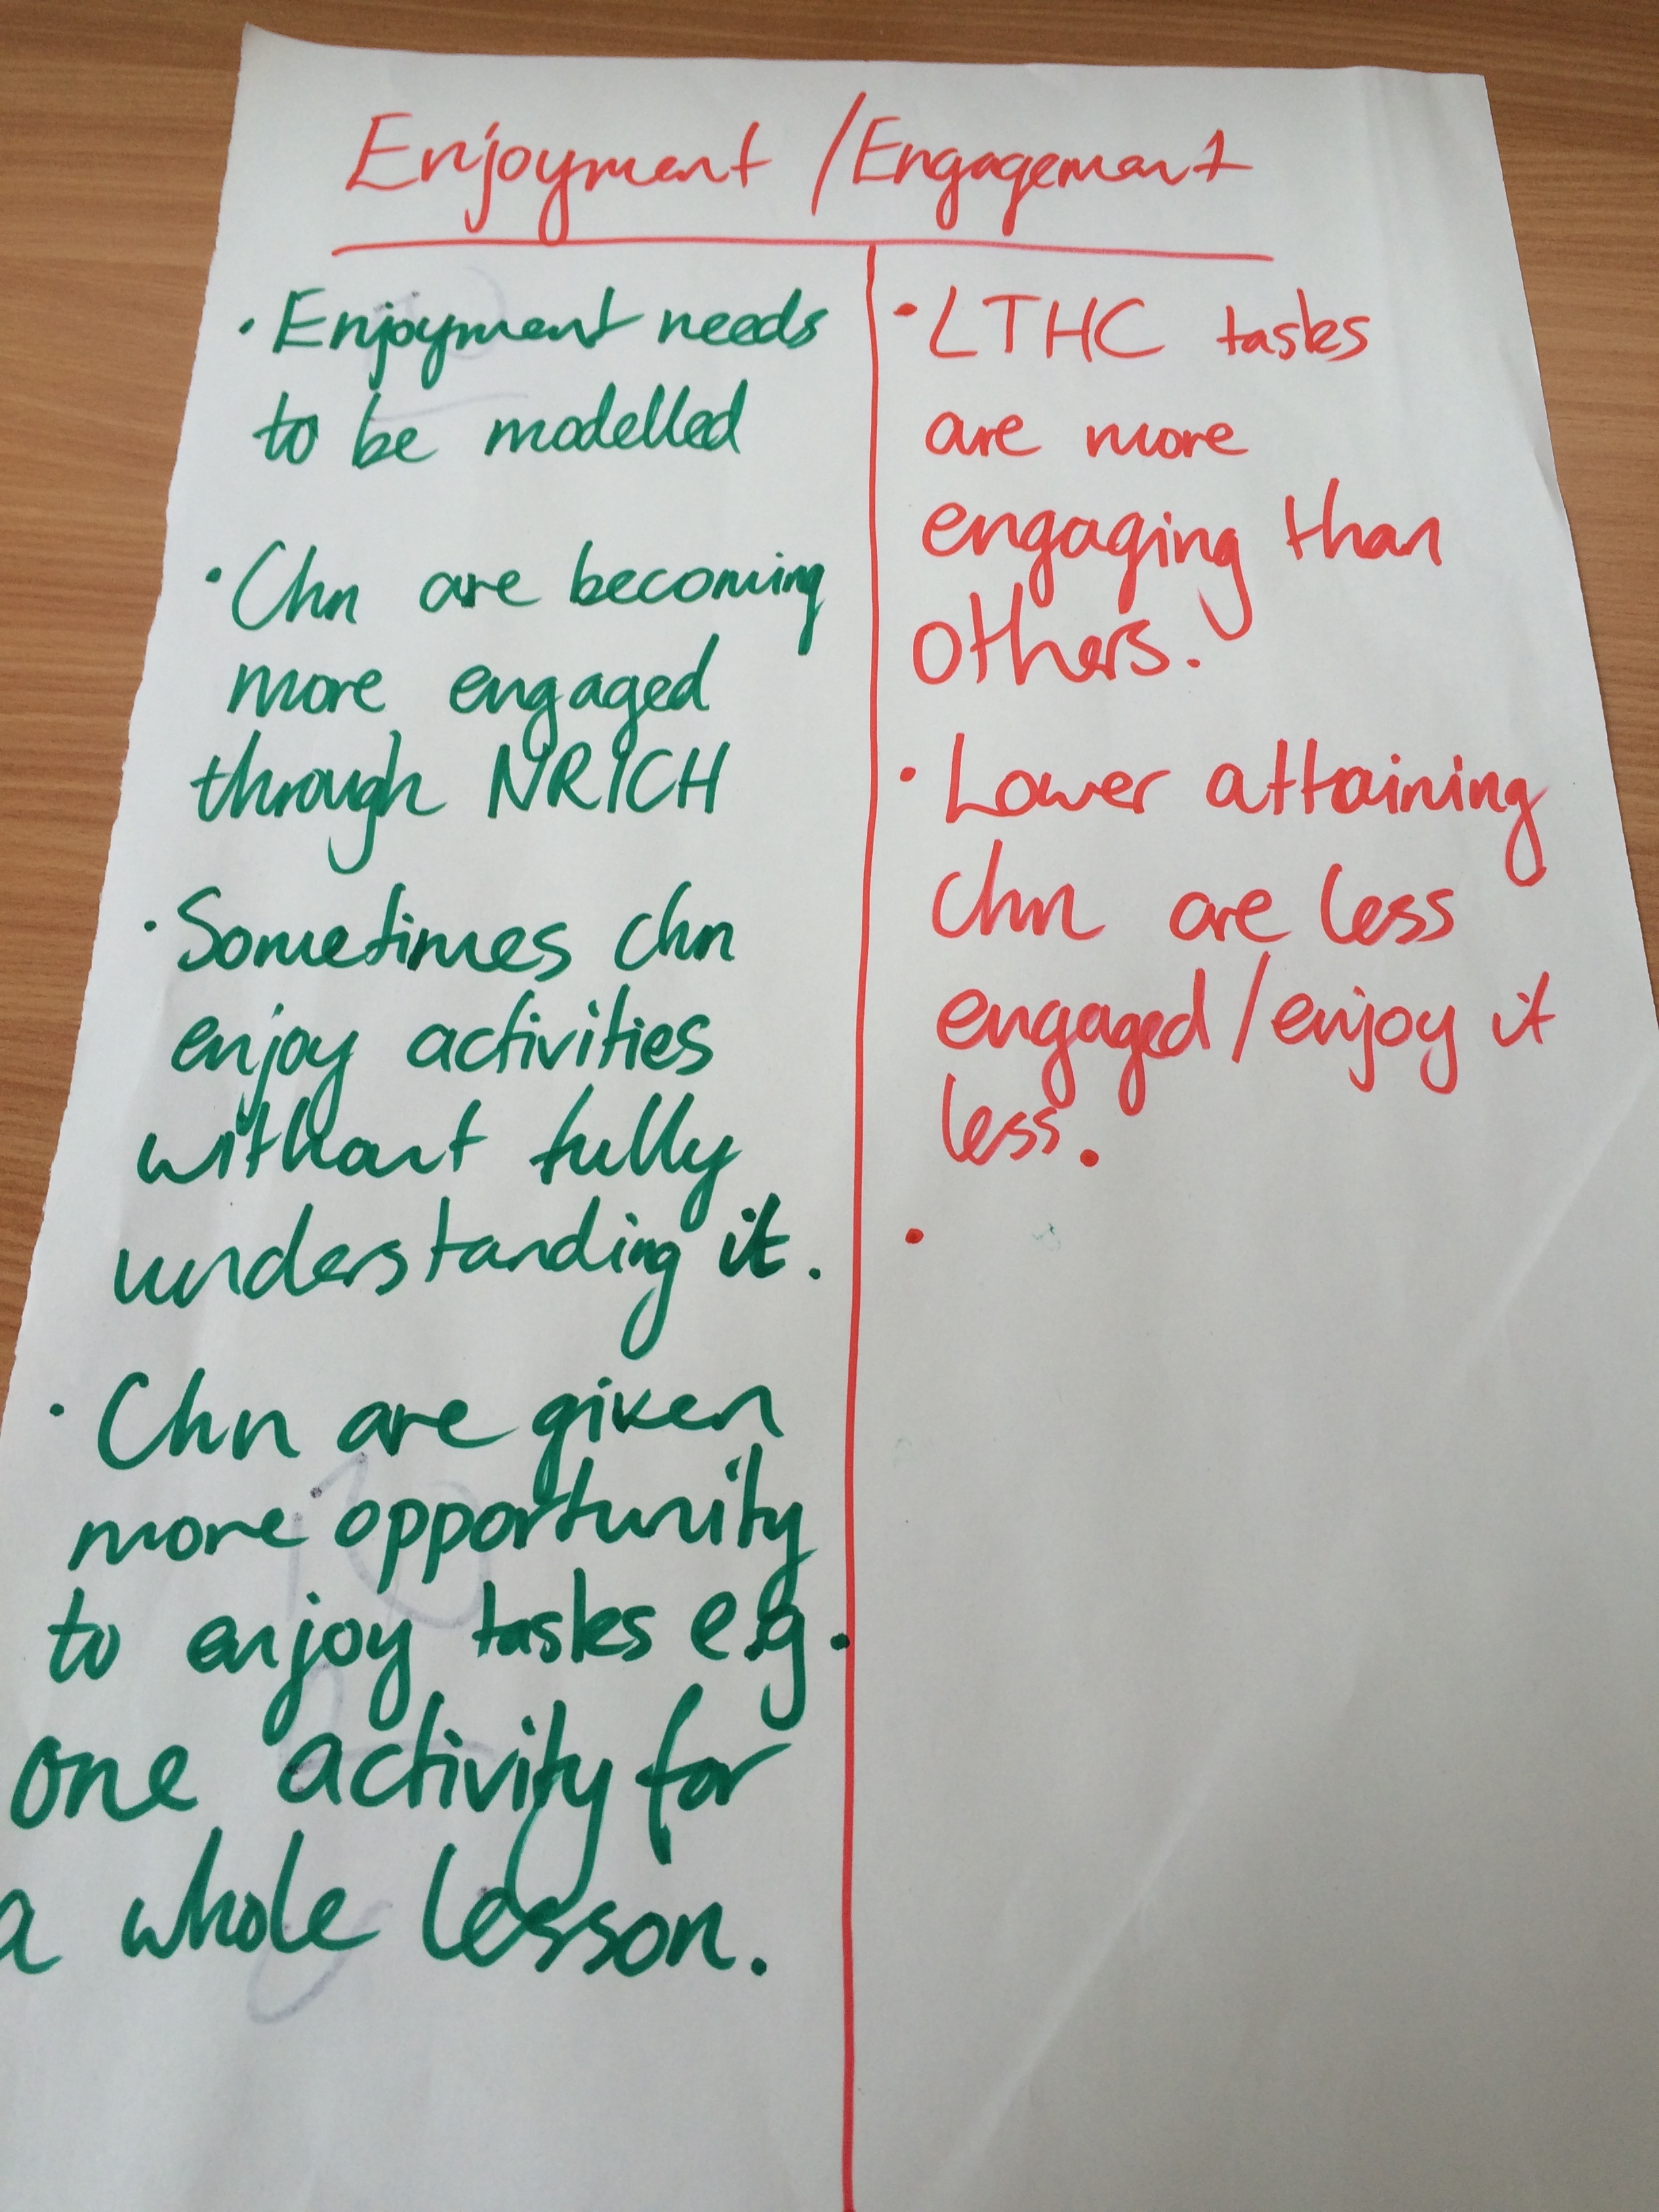 Enjoyment / Engagement
• Enjoyment needs
to be modelled
• Chn are becoming
more engaged
through NRICH
• Sometimes chn
enjoy activities
without fully
understanding it.
• Chn are given
more opportunity
to enjoy tasks e.g.
one activity for
a whole lesson.
• LTHC tasks
are more
engaging than
others.
• Lower attaining
chn are less
engaged/enjoy it
less.
•